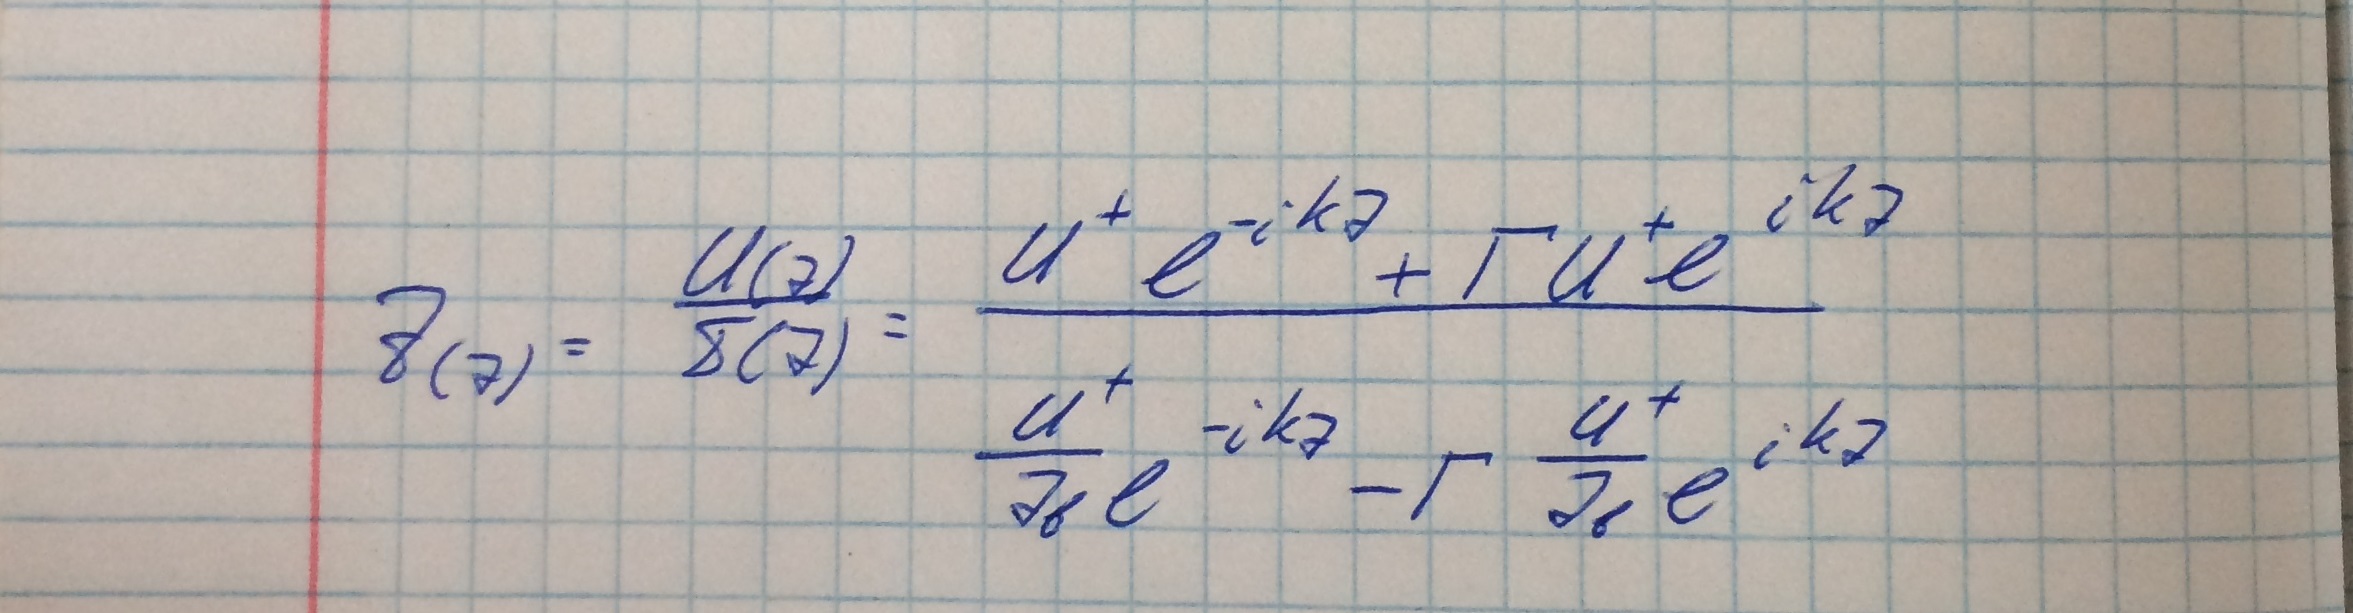 Z(z) = U(z)/I(z) = (U⁺ e^(-ikz) + Г U⁺ e^(ikz)) / ((U⁺/Zв) e^(-ikz) - Г (U⁺/Zв) e^(ikz))